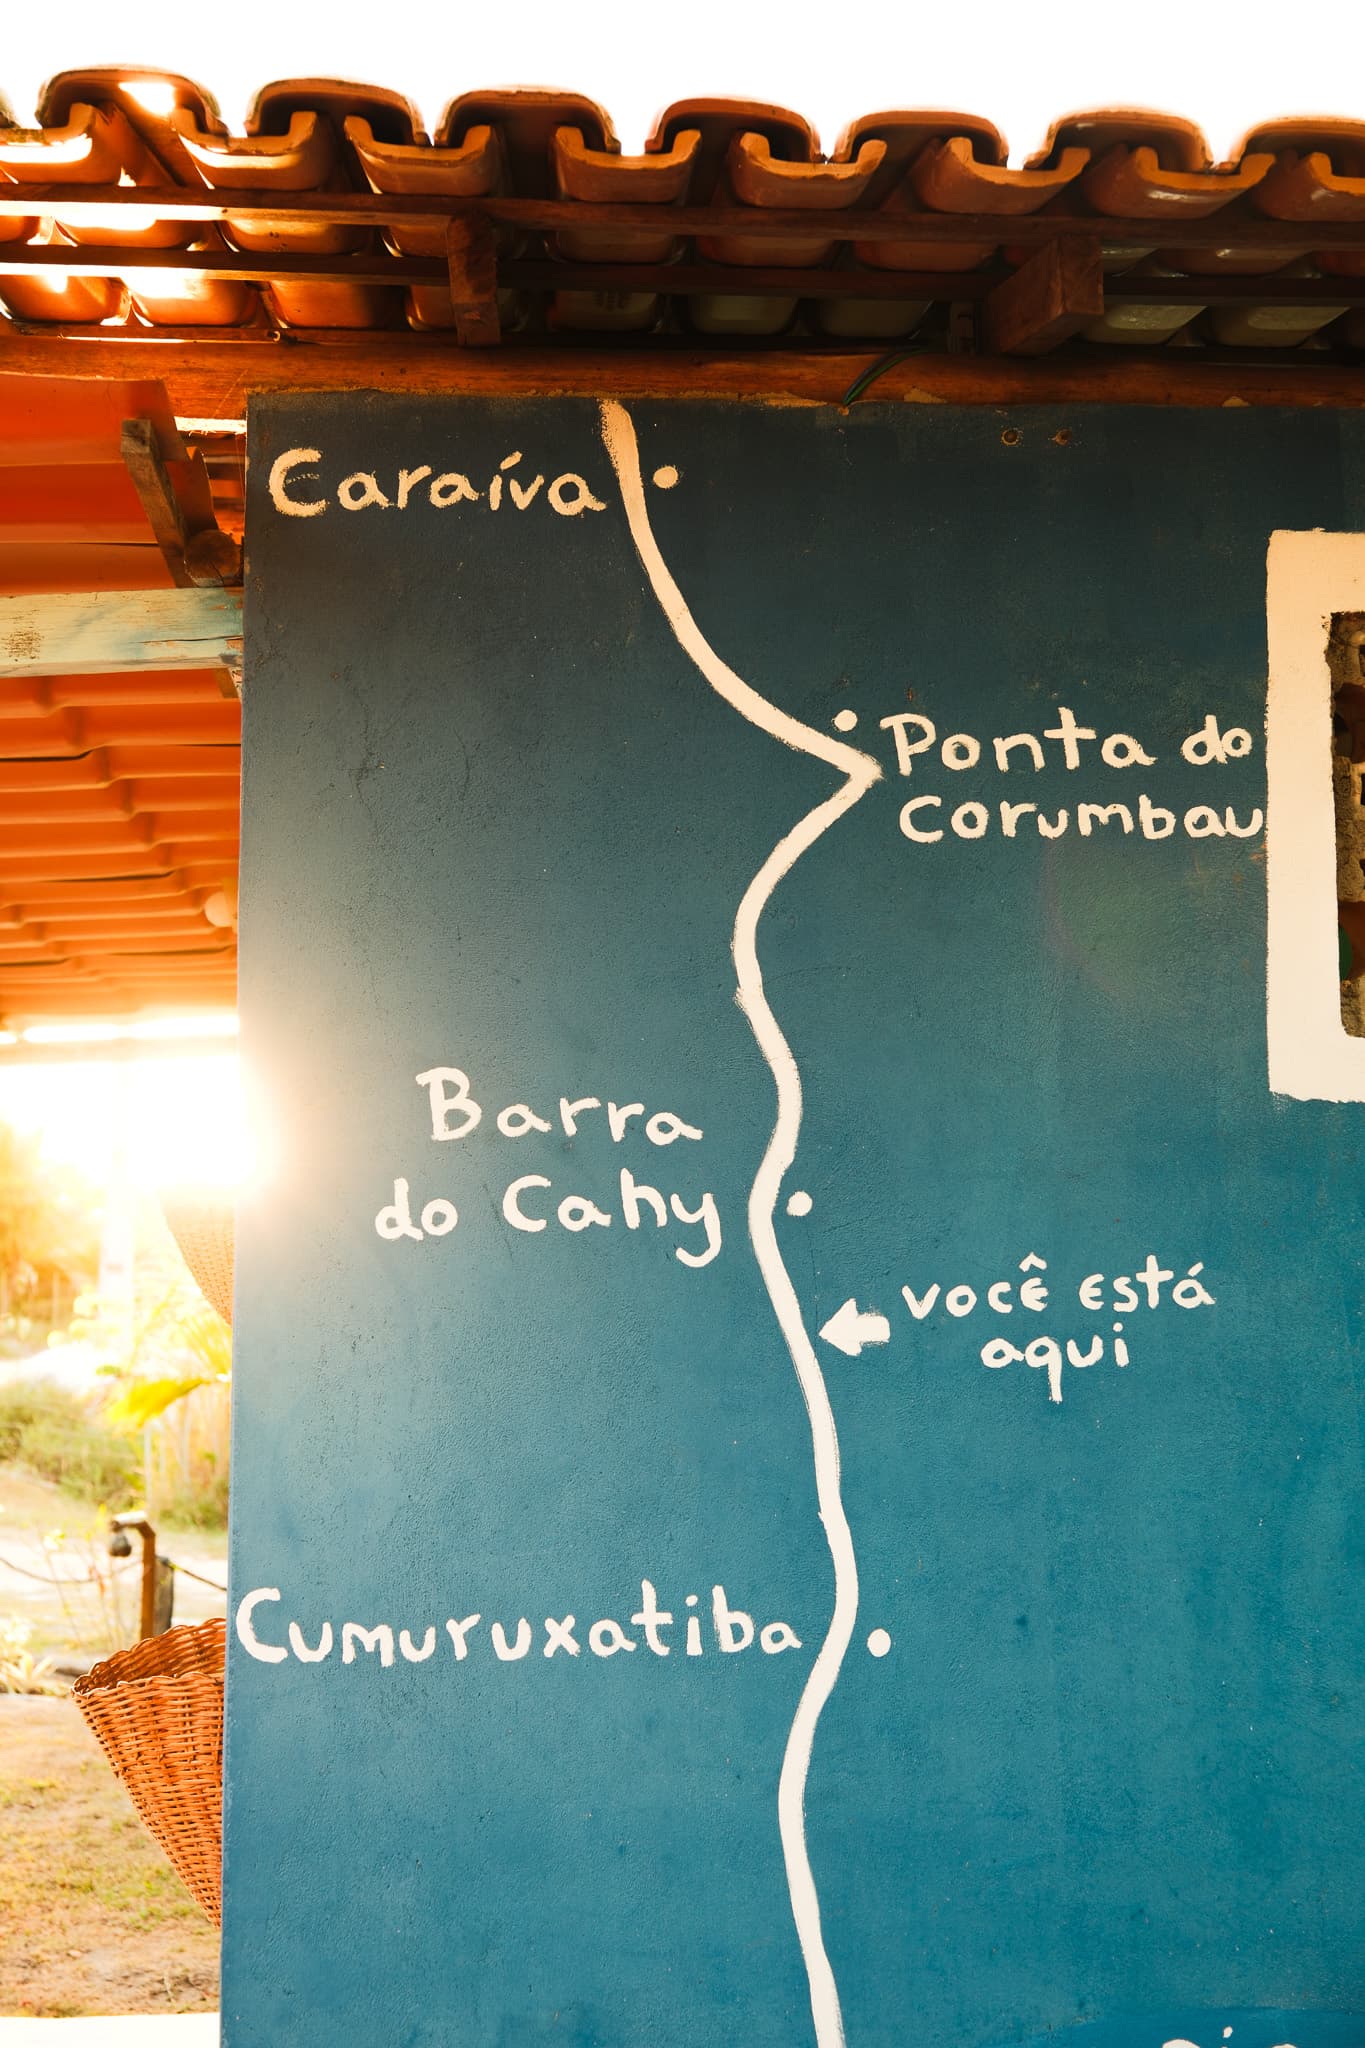 Caraíva
Ponta do
Corumbau
Barra
do Cahy
você está
aqui
Cumuruxatiba